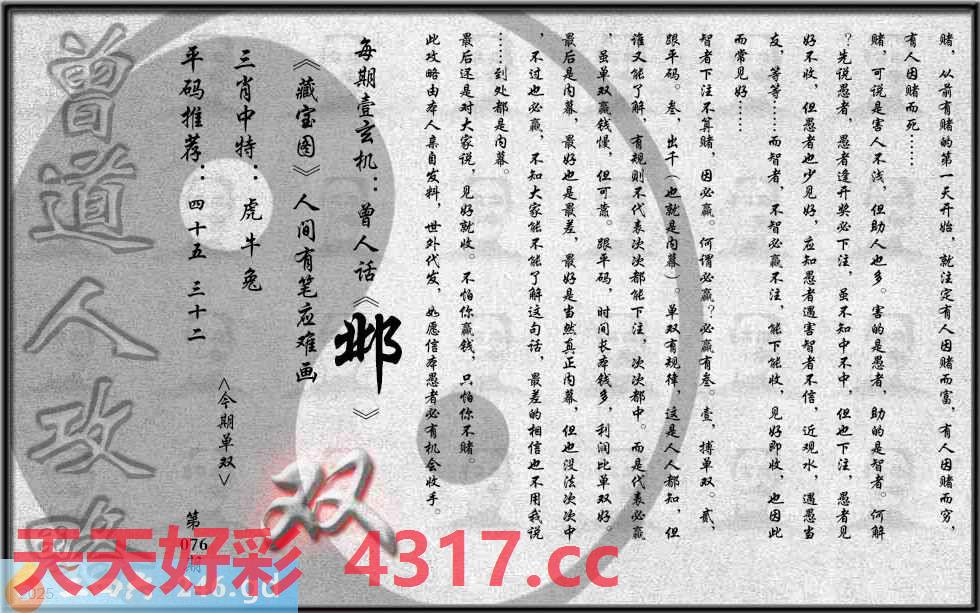 赌，从前有赌的第一天开始，就注定有人因赌而富，有人因赌而穷，
有人因赌而死……
赌，可说是害人不浅，但助人也多。害的是愚者，助的是智者。何解
？先说愚者，愚者逢开奖必下注，虽不知中不中，但也下注，愚者见
好不收，但愚者也少见好，应知愚者遇害智者不信，近观水，遇愚当
友，等等……而智者，不智必赢不注，能下能收，见好即收，也因此
而常见好……
智者下注不算赌，因必赢。何谓必赢？必赢有叁。壹，搏单双。贰，
跟平码。叁，出千（也就是内幕）。单双有规律，这是人人都知，但
谁又能了解，有规则不代表次次都能下注，次次都中。而是代表必赢
，虽单双赢钱慢，但可靠。跟平码，时间长本钱多，利润比单双好。
最后是内幕，最好也是最差，最好是当然真正内幕，但也没法次次中
，不过也必赢，不知大家能不能了解这句话，最差的相信也不用我说
……到处都是内幕。
最后还是对大家说，见好就收。不怕你赢钱，只怕你不赌。
此攻略由本人亲自发料，世外代发，如愿信本愚者必有机会收手。
每期壹玄机：曾人话《邺》
《藏宝图》人间有笔应难画
三肖中特：虎牛兔
平码推荐：四十五 三十二
<今期单双>
双
第
076
期
曾道人攻略
天天好彩 4317.cc
2025
246.gd